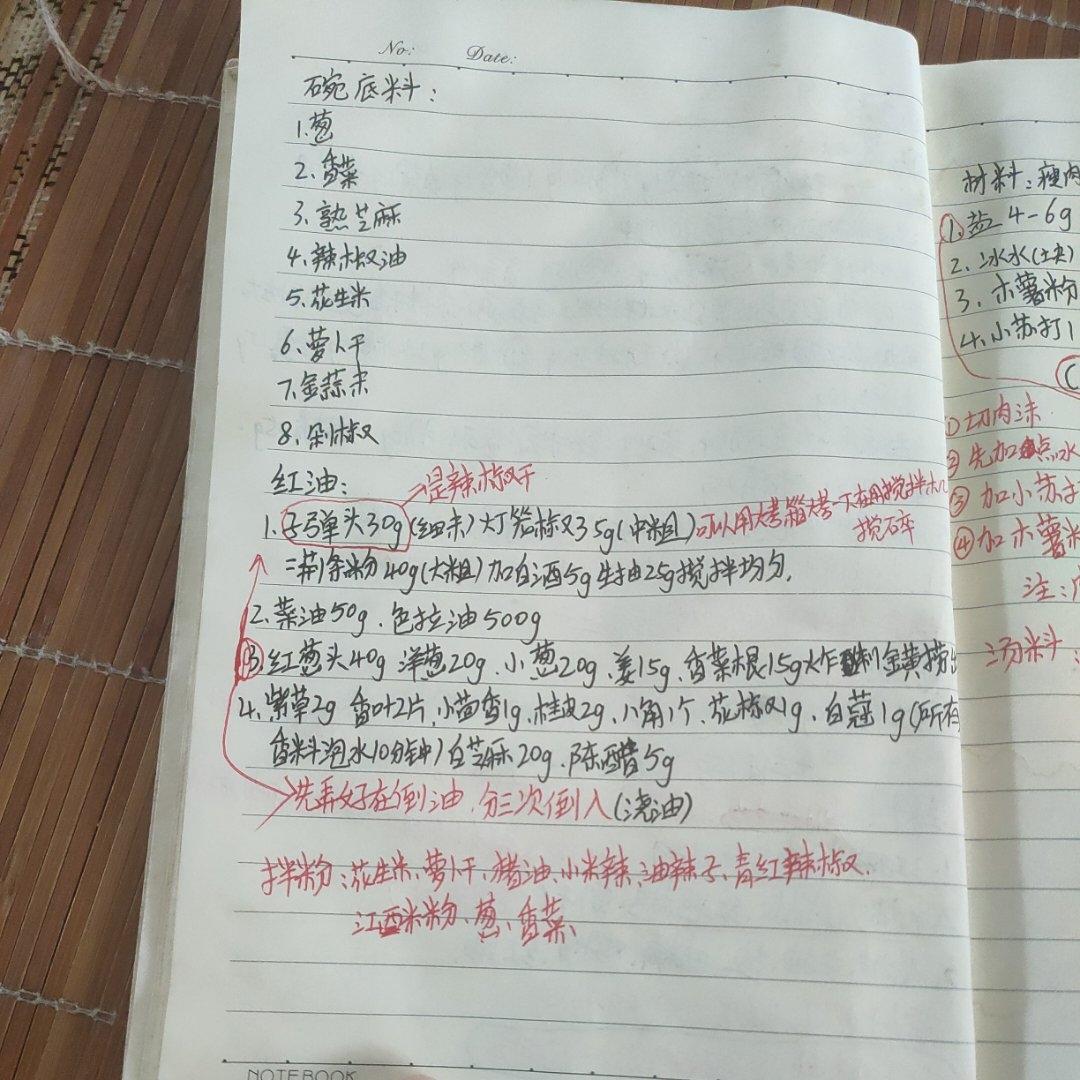 No: Date:
碗底料：
1.葱
2.香菜
3.熟芝麻
4.辣椒油
5.花生米
6.萝卜干
7.金蒜末
8.剁椒
红油：
→是辣椒干
1.子弹头30g(细末)灯笼椒35g(中粗)可以用烤箱烤一下在用搅拌机
搅碎
二荆条粉40g(大粗)加白酒5g生抽25g搅拌均匀.
2.菜油50g、色拉油500g
③红葱头40g 洋葱20g、小葱20g、姜15g、香菜根15g炸制金黄捞出
4.紫草2g 香叶2片、小茴香1g、桂皮2g、八角1个、花椒1g、白蔻1g(所有
香料泡水10分钟)白芝麻20g、陈醋5g
→先弄好在倒油、分三次倒入(浇油)
拌粉：花生米、萝卜干、猪油、小米辣、油辣子、青红辣椒、
江西米粉、葱、香菜、
NOTEBOOK
材料：瘦肉
1.盐4-6g
2.冰水(块)
3.木薯粉
4.小苏打1
①切肉沫
②先加点水
③加小苏打
④加木薯粉
注：
汤料：